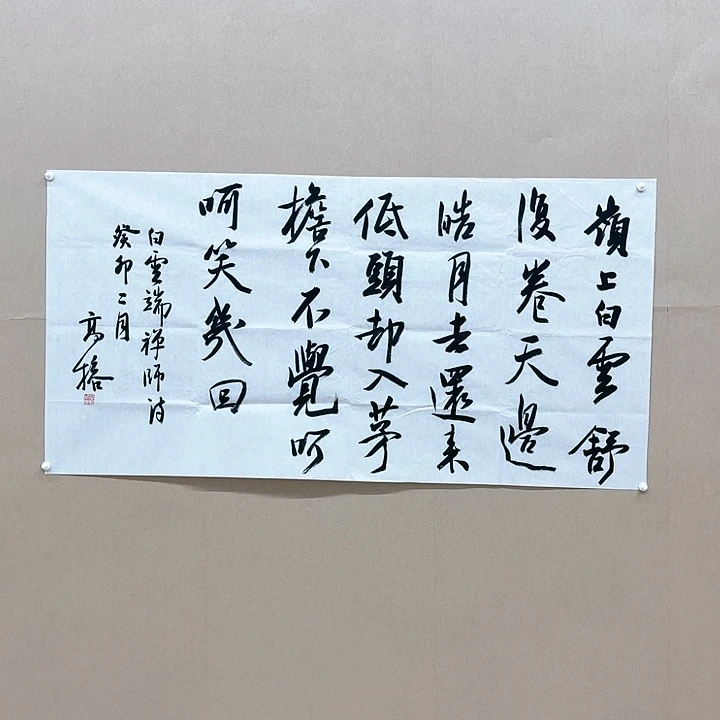 嶺上白雲舒
復卷天邊
皓月去還来
低頭却入茅
檐下不覺呵
呵笑幾回
白雲端禅師诗
癸卯二月
高椿